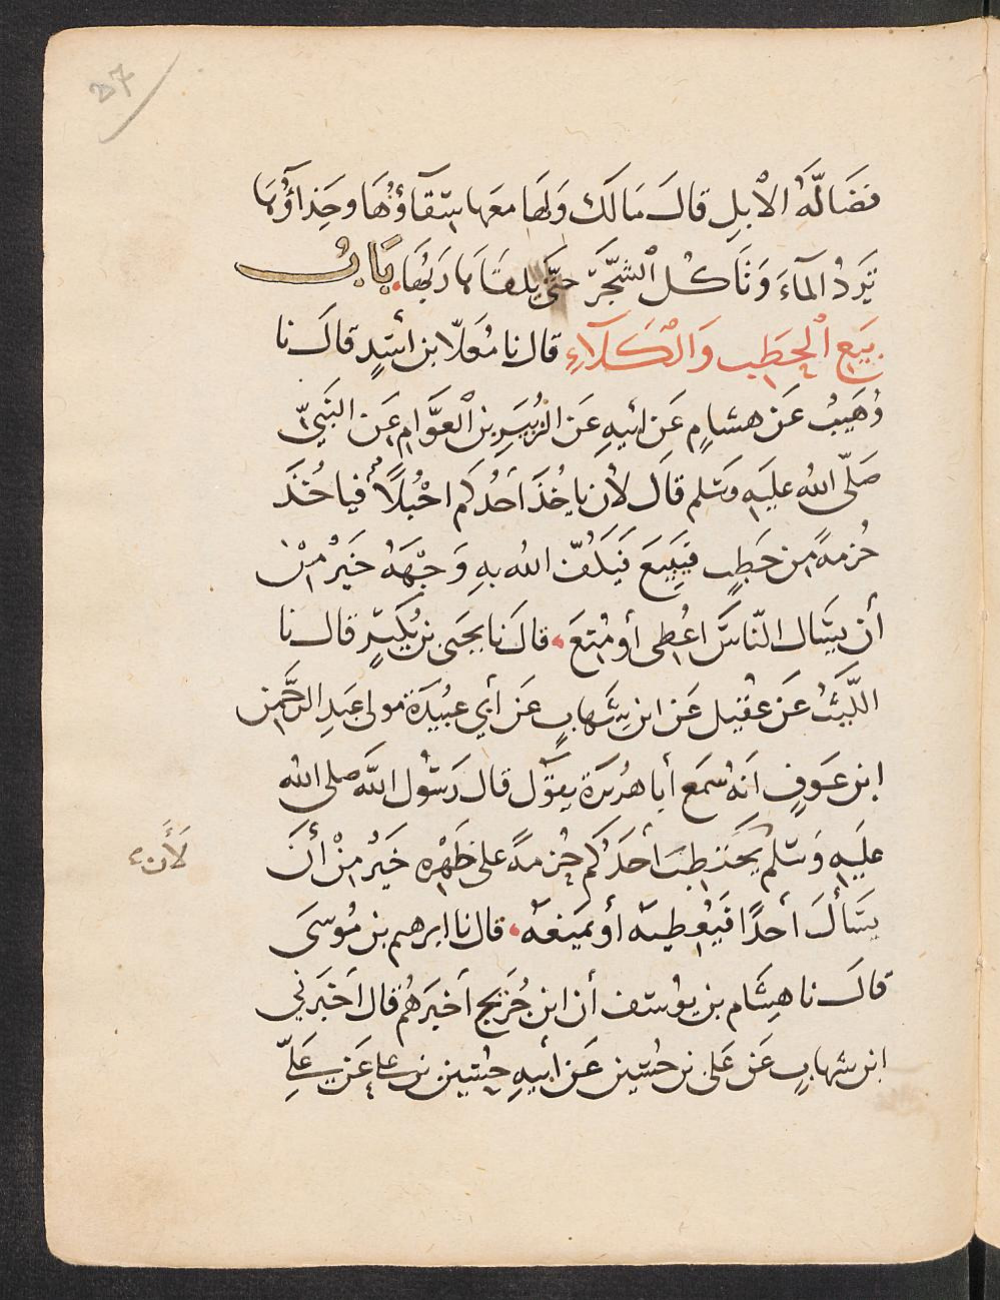 27
فضَالَّةُ الاْبِلِ قالَ مَالَكَ وَلَهَا معَها سِقَآؤُهَا وحِذَآؤُهَا
تَرِدُ المآءَ وَتَاكُل الْشَّجَرَ حتَّى يلقَاهَا رَبُّهَا. بَابُ
بَيْعِ اْلحَطَبِ وَاْلكَلَاءِ قال نا مُعَلّا بن أَسَدٍ قالَ نا
وُهَيْبٌ عَن هشامٍ عَن ابيهِ عَن الزُبَيْرِ بن اْلعَوَّامِ عَن النَبيّ
صَلّى الله عليَه وسَلم قال لأن ياخُذَ أحَدُكم احْبُلاً فياخُذَ
حُزمَةً من حَطَبٍ فيَبِيعَ فَيَكُفّ الله بهِ وَجْهَهُ خَيْرٌ مِنْ
أن يسَال النّاسَ اعُطِى أو مُنِعَ. قالَ نا يحيَى بن بُكَيْرٍ قال نا
اللّيْثُ عَن عقَيل عَن ابن شِهابٍ عَن أبي عبَيْدَةَ مولى عَبدِ الرَّحمن
ابن عَوفٍ انَهُ سَمعَ أبا هرُيَرةَ يقوَل قال رَسُول الله صلى الله
عليَه وَسَلم يَحْتَطِبَ أحَدُكم حُزمَةً على ظَهْرِه خَيْرٌ مِنْ أنَ
لَأَن
يسَألَ أحَدًا فيَعُطِيَهُ أو يَمنَعَهُ. قال نا ابرهيم بن مُوسَى
قالَ نا هِشَام بن يوسُف أن ابن جُرَيج أخبَرَهُم قال أخبَرَني
ابن شهابٍ عَن عَلى بن حُسَين عَن أبيهِ حُسَين بن على عَن عَلِيّ